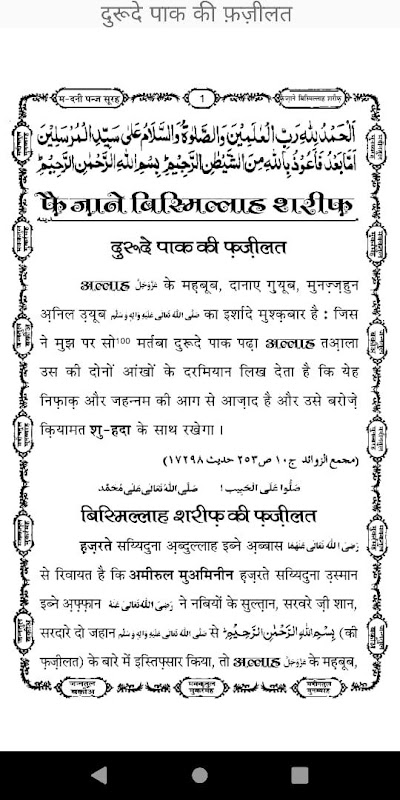 दुरूदे पाक की फ़ज़ीलत
म-दनी पन्ज सूरह
1
फ़ैज़ाने बिस्मिल्लाह शरीफ़
اَلْحَمْدُ لِلّٰهِ رَبِّ الْعٰلَمِيْنَ وَالصَّلٰوةُ وَالسَّلَامُ عَلٰى سَيِّدِ الْمُرْسَلِيْنَ
اَمَّا بَعْدُ فَاَعُوْذُ بِاللّٰهِ مِنَ الشَّيْطٰنِ الرَّجِيْمِ بِسْمِ اللّٰهِ الرَّحْمٰنِ الرَّحِيْمِ
फ़ैज़ाने बिस्मिल्लाह शरीफ़
दुरूदे पाक की फ़ज़ीलत
अल्लाह عَزَّوَجَلَّ के महबूब, दानाए गुयूब, मुनज़्ज़हुन
अ़निल उ़यूब صَلَّى اللّٰهُ تَعَالٰى عَلَيْهِ وَاٰلِهٖ وَسَلَّم का इर्शादे मुश्कबार है : जिस
ने मुझ पर सो100 मर्तबा दुरूदे पाक पढ़ा अल्लाह तआ़ला
उस की दोनों आंखों के दरमियान लिख देता है कि येह
निफ़ाक़ और जहन्नम की आग से आज़ाद है और उसे बरोज़े
क़ियामत शु-हदा के साथ रखेगा ।
(مجمع الزوائد ج١٠ ص٢٥٣ حديث ١٧٢٩٨)
صَلُّوا عَلَى الْحَبِيْب! صَلَّى اللّٰهُ تَعَالٰى عَلٰى مُحَمَّد
बिस्मिल्लाह शरीफ़ की फ़ज़ीलत
हज़रते सय्यिदुना अ़ब्दुल्लाह इब्ने अ़ब्बास رَضِىَ اللّٰهُ تَعَالٰى عَنْهُمَا
से रिवायत है कि अमीरुल मुअमिनीन हज़रते सय्यिदुना उ़स्मान
इब्ने अ़फ़्फ़ान رَضِىَ اللّٰهُ تَعَالٰى عَنْهُ ने नबियों के सुल्तान, सरवरे ज़ी शान,
सरदारे दो जहान صَلَّى اللّٰهُ تَعَالٰى عَلَيْهِ وَاٰلِهٖ وَسَلَّم से بِسْمِ اللّٰهِ الرَّحْمٰنِ الرَّحِيْمِ (की
फ़ज़ीलत) के बारे में इस्तिफ़्सार किया, तो अल्लाह عَزَّوَجَلَّ के महबूब,